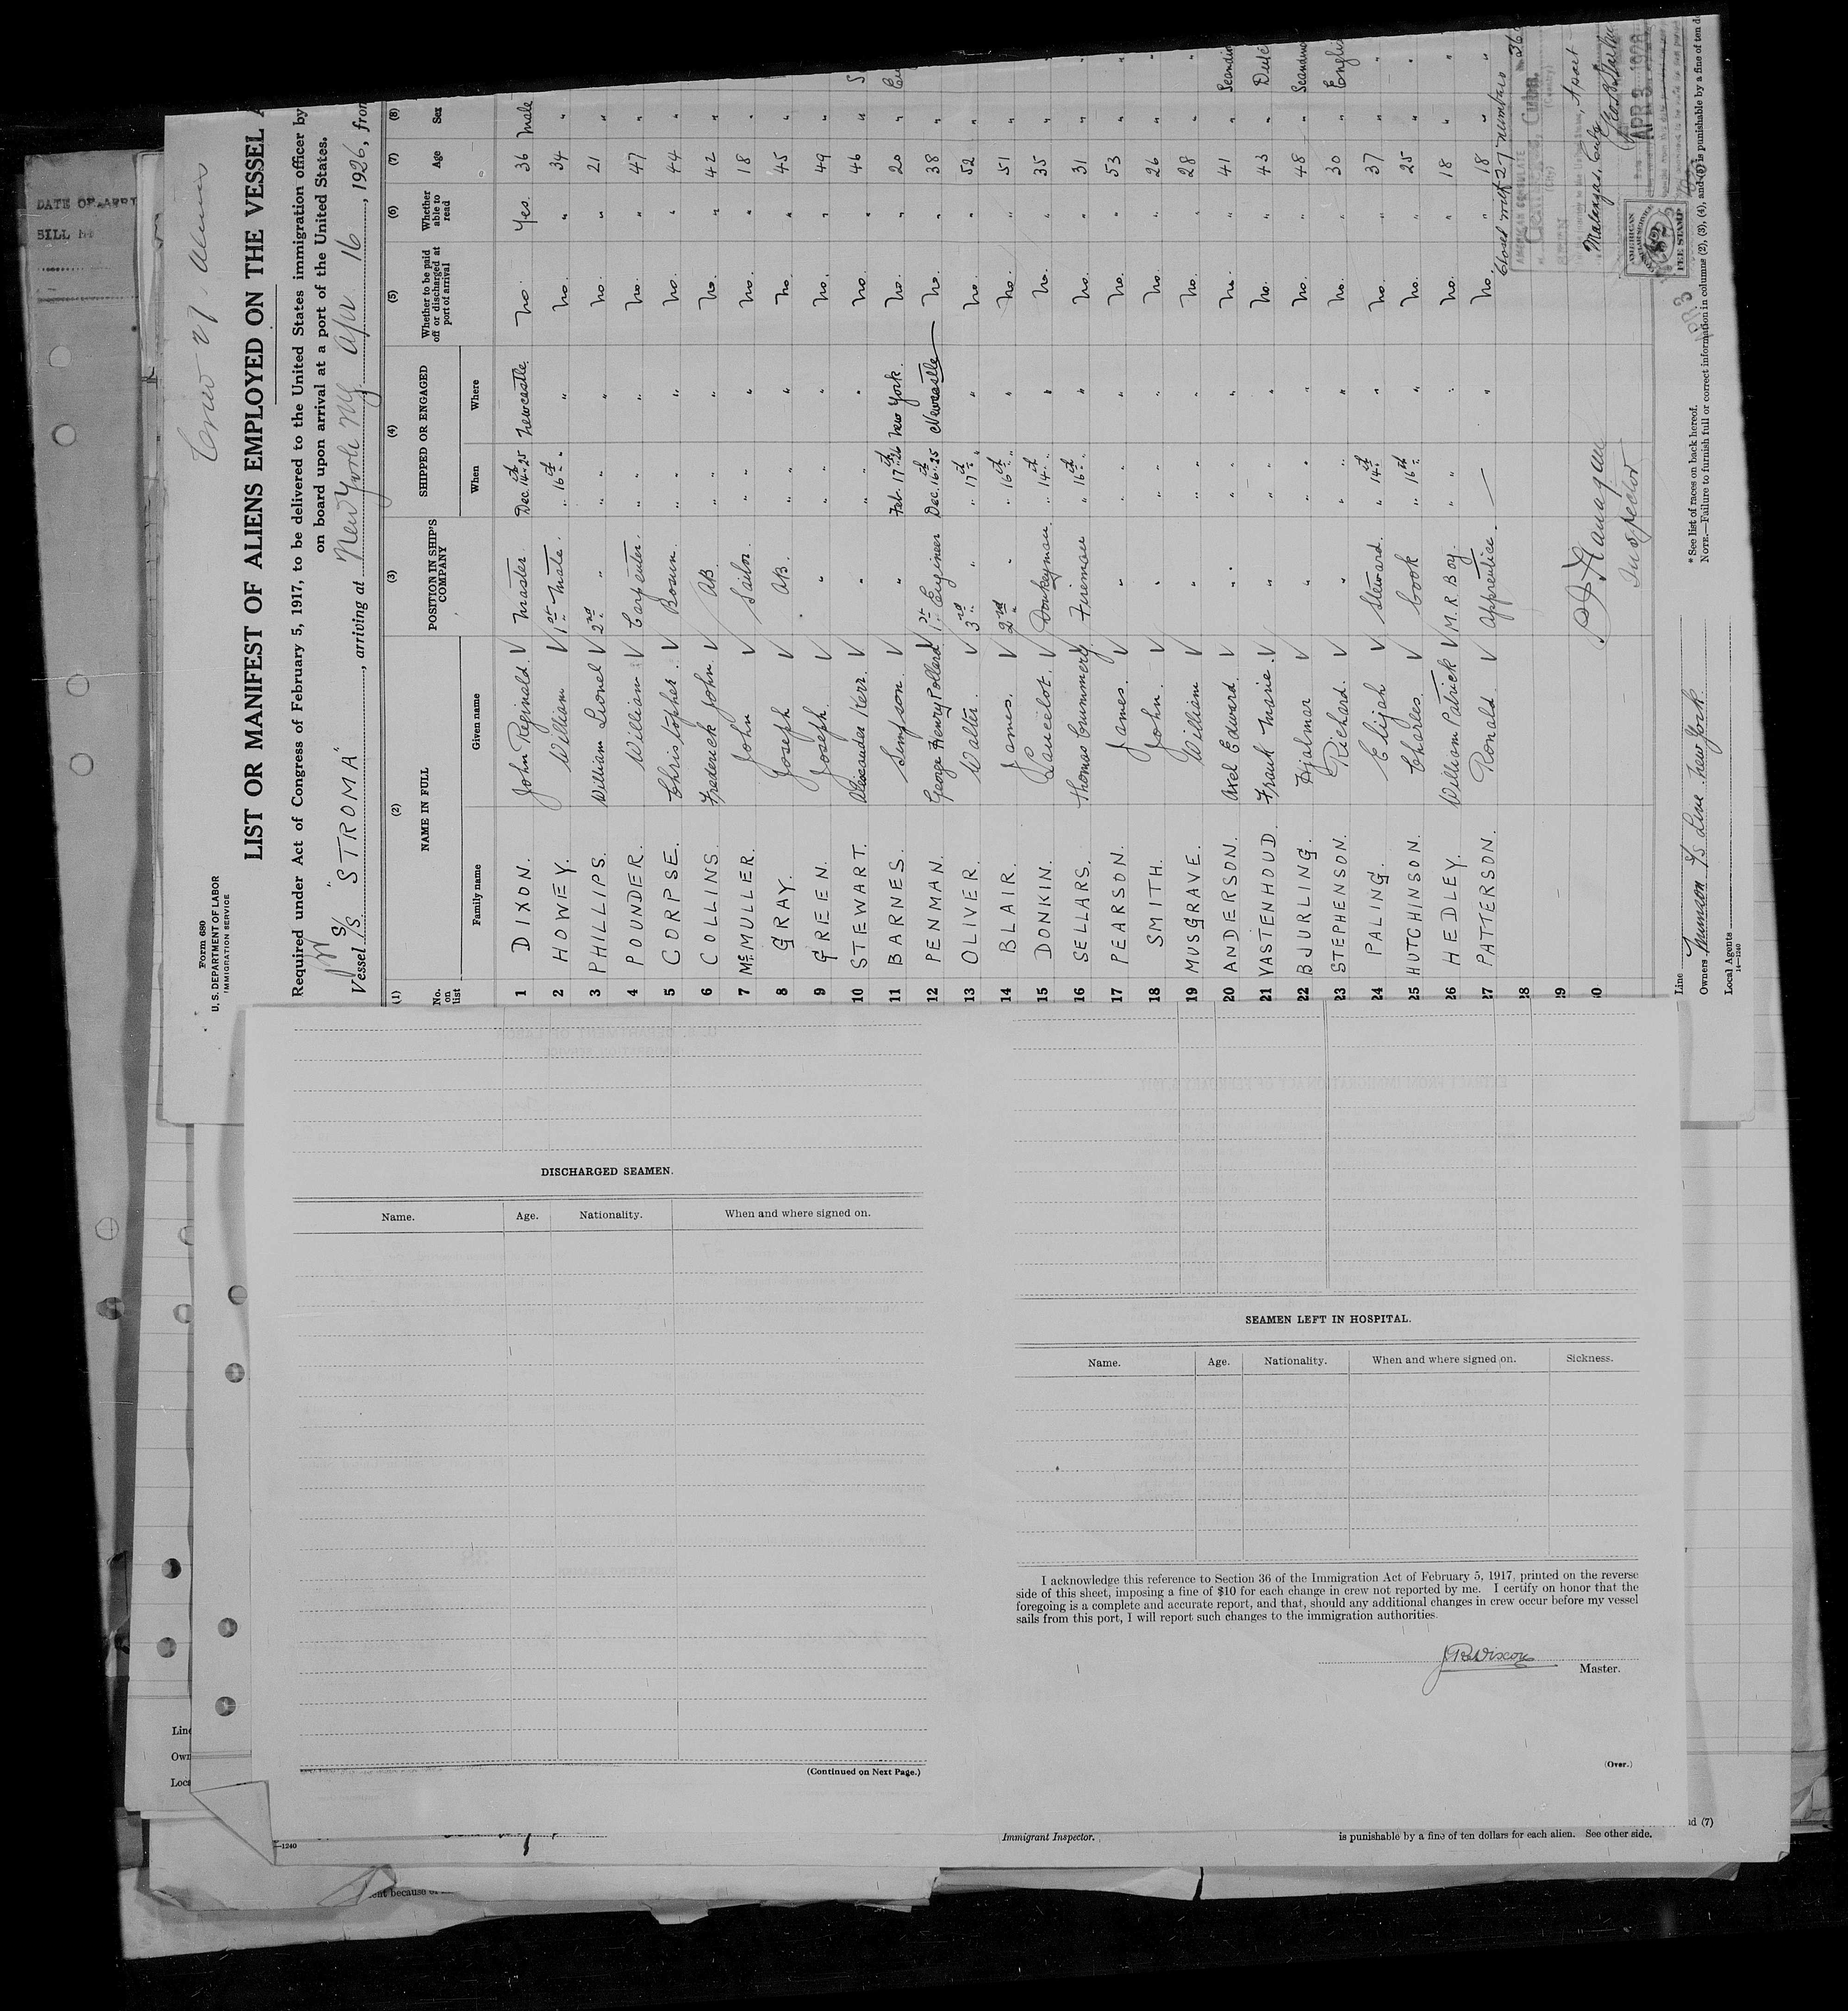 DATE OF ARRI
BILL
Crew 27. Aliens
Form 680
U. S. DEPARTMENT OF LABOR
IMMIGRATION SERVICE
LIST OR MANIFEST OF ALIENS EMPLOYED ON THE VESSEL A
Required under Act of Congress of February 5, 1917, to be delivered to the United States immigration officer by
on board upon arrival at a port of the United States.
Vessel S/S "STROMA", arriving at New York NY. Apr 16, 1926, from
(1) (2) (3) (4) (5) (6) (7) (8)
No. on list NAME IN FULL POSITION IN SHIP'S COMPANY SHIPPED OR ENGAGED Whether to be paid off or discharged at port of arrival Whether able to read Age Sex
Family name Given name When Where
1 DIXON. John Reginald. √ Master. Dec. 14th 25 Newcastle. No. Yes. 36 Male
2 HOWEY. William √ 1st Mate. " 16th " " No. " 34 "
3 PHILLIPS. William Lionel √ 2nd " " " " No. " 21 "
4 POUNDER. William √ Carpenter. " " " No. " 47 "
5 CORPSE. Christopher. √ Bosun. " " " No. " 44 "
6 COLLINS. Frederick John. √ AB. " " " No. " 42 "
7 McMULLER. John √ Sailor. " " " No. " 18 "
8 GRAY. Joseph √ AB. " " " No. " 45 "
9 GREEN. Joseph. √ " " " " No. " 49 "
10 STEWART. Alexander Kerr. √ " " " " No. " 46 " S
11 BARNES. Simpson. √ " Feb. 17th 26 New York. No. " 20 "
12 PENMAN. George Henry Pollard √ 1st Engineer Dec. 16th 25 Newcastle No. " 38 "
13 OLIVER. Walter. √ 3rd " " 17th " " No. " 52 "
14 BLAIR. James. √ 2nd " " 16th " " No. " 51 "
15 DONKIN. Lancelot. √ Donkeyman. " 14th " " No. " 35 "
16 SELLARS. Thomas Crummery √ Fireman " 16th " " No. " 31 "
17 PEARSON. James. √ " " " " No. " 53 "
18 SMITH. John. √ " " " " No. " 26 "
19 MUSGRAVE. William √ " " " " No. " 28 "
20 ANDERSON. Axel Edward. √ " " " " No. " 41 " Scandin
21 VASTENHOUD. Frank Marie. √ " " " " No. " 43 " Dutc
22 BJURLING. Hjalmar √ " " " " No. " 48 " Scandina
23 STEPHENSON. Richard. √ " " " " No. " 30 " Englis
24 PALING. Elijah √ Steward. " 14th " No. " 37 " "
25 HUTCHINSON. Charles. √ Cook " 16th " No. " 25 " "
26 HEDLEY. William Patrick √ M.R. Boy. " " " No. " 18 " "
27 PATTERSON. Ronald √ Apprentice. — " No. " 18 " "
28 Closed with 27 numbers
AMERICAN CONSULATE
Cuba.
29
Matanzas, Cuba
30
APR 3 1926
AMERICAN
FEE STAMP
APR 3
Inspector
Line
Owners Munson S/S Line New York
Local Agents
14—1240
* See list of races on back hereof.
NOTE.—Failure to furnish full or correct information in columns (2), (3), (4), and (6) is punishable by a fine of ten do
DISCHARGED SEAMEN.
Name. Age. Nationality. When and where signed on.
(Continued on Next Page.)
SEAMEN LEFT IN HOSPITAL.
Name. Age. Nationality. When and where signed on. Sickness.
I acknowledge this reference to Section 36 of the Immigration Act of February 5, 1917, printed on the reverse
side of this sheet, imposing a fine of $10 for each change in crew not reported by me. I certify on honor that the
foregoing is a complete and accurate report, and that, should any additional changes in crew occur before my vessel
sails from this port, I will report such changes to the immigration authorities.
J R Dixon
Master.
(Over.)
Line
Own
Loca
—1240
Immigrant Inspector.
nd (7)
is punishable by a fine of ten dollars for each alien. See other side.
ent because of